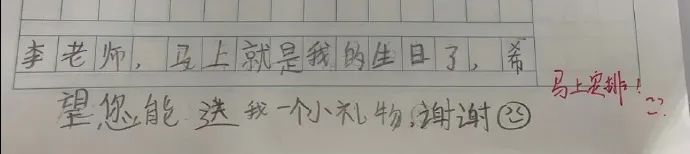 李老师，马上就是我的生日了，希
望您能送我一个小礼物，谢谢
马上安排！